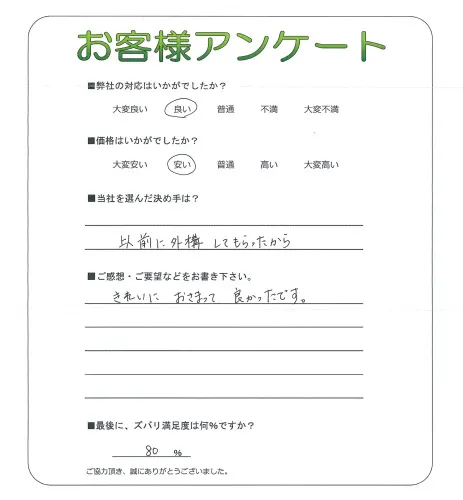 お客様アンケート
■弊社の対応はいかがでしたか？
大変良い 良い 普通 不満 大変不満
■価格はいかがでしたか？
大変安い 安い 普通 高い 大変高い
■当社を選んだ決め手は？
以前に外構してもらったから
■ご感想・ご要望などをお書き下さい。
きれいに おさまって 良かったです。
■最後に、ズバリ満足度は何％ですか？
80 %
ご協力頂き、誠にありがとうございました。